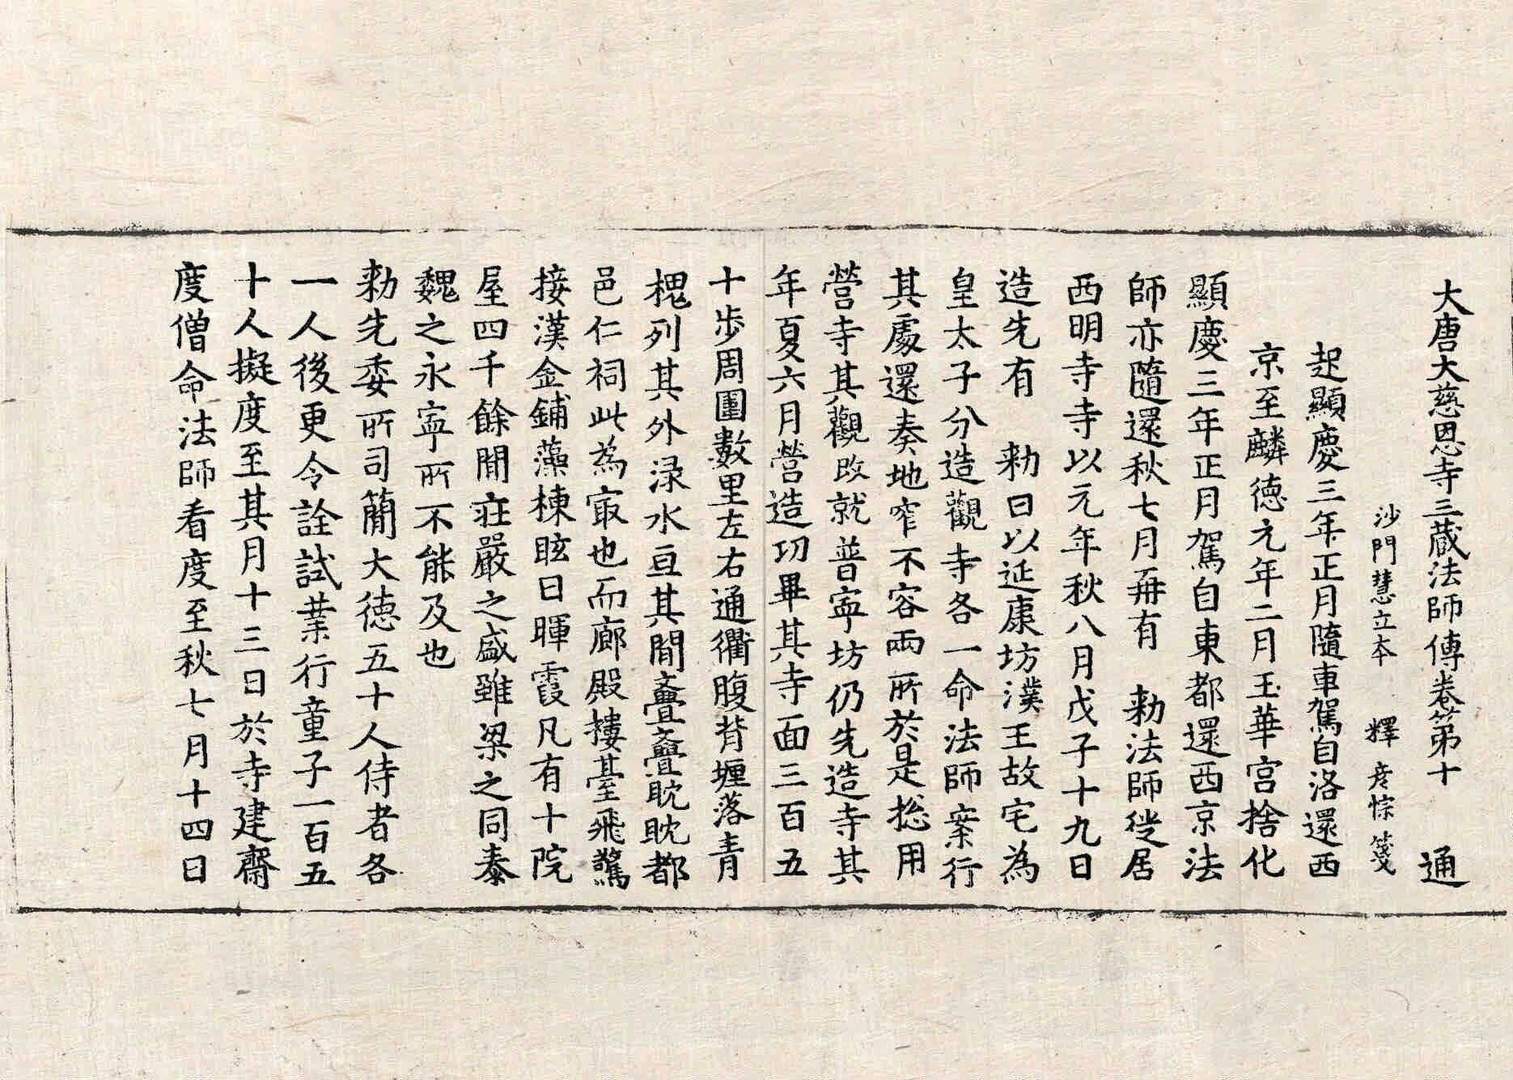 大唐大慈恩寺三蔵法師傳卷第十　通
沙門慧立本　釋彦悰箋
起顯慶三年正月隨車駕自洛還西
京至麟德元年二月玉華宮捨化
顯慶三年正月駕自東都還西京法
師亦隨還秋七月再有　勑法師徙居
西明寺寺以元年秋八月戊子十九日
造先有　勑曰以延康坊濮王故宅為
皇太子分造觀寺各一命法師案行
其處還奏地窄不容兩所於是揔用
營寺其觀改就普寧坊仍先造寺其
年夏六月營造功畢其寺面三百五
十步周圍數里左右通衢腹背堙落青
槐列其外渌水亘其間亹亹耽耽都
邑仁祠此為寂也而廊殿樓臺飛驚
接漢金鋪藻棟眩日暉霞凡有十院
屋四千餘間莊嚴之盛雖梁之同泰
魏之永寧所不能及也
勑先委所司蕳大德五十人侍者各
一人後更令詮試業行童子一百五
十人擬度至其月十三日於寺建齋
度僧命法師看度至秋七月十四日